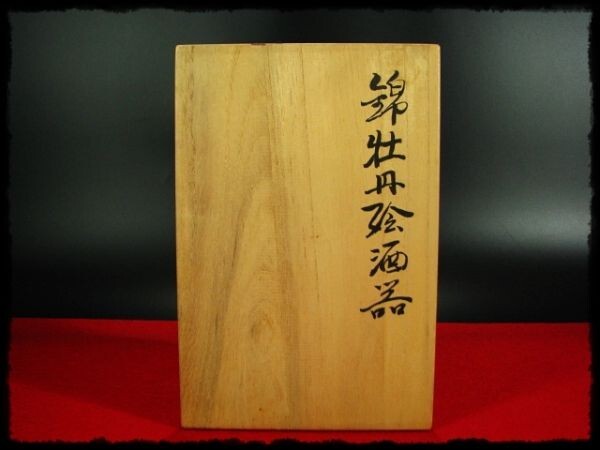 錦牡丹絵酒器